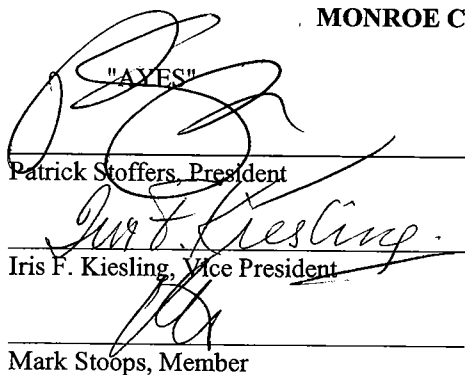 MONROE C
"AYES"
Patrick Stoffers, President
Iris F. Kiesling.
Iris F. Kiesling, Vice President
Mark Stoops, Member